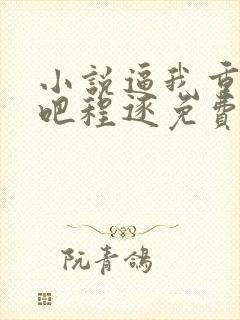 小說逼我重
吧程逐免費
阮青鴿